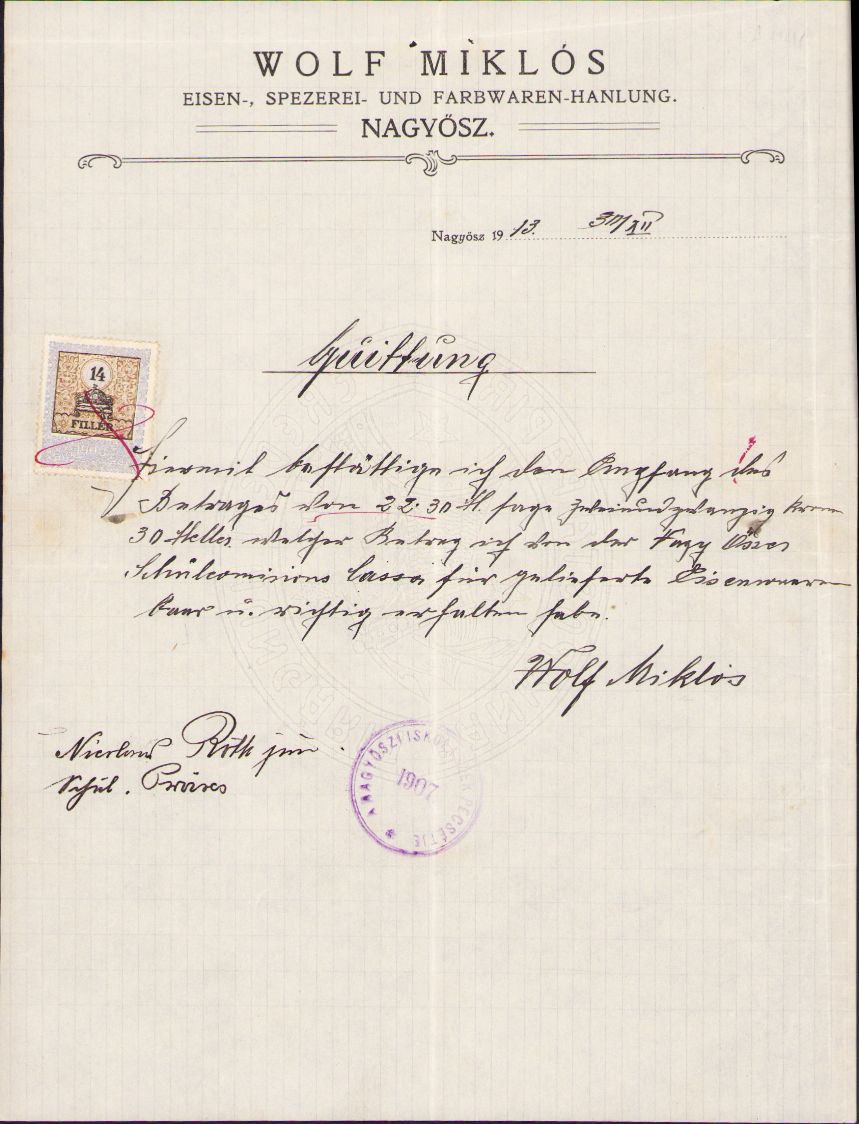 WOLF MIKLÓS
EISEN-, SPEZEREI- UND FARBWAREN-HANLUNG.
NAGYŐSZ.
Nagyősz 1913. XII
Quittung
14
FILLÉR
Hiermit bestättige ich den Empfang des
Betrages von 22·30 H. sage zweiundzwanzig Kron
30 Heller welcher Betrag ich von der Nagy Őszer
Schulcomisions Cassa für gelieferte Eisenwaaren
baar u. richtig erhalten habe.
Wolf Miklós
Nicolaus Röth jun.
Schul. Präses
A NAGYŐSZI ISKOLA PECSÉTJE
1907